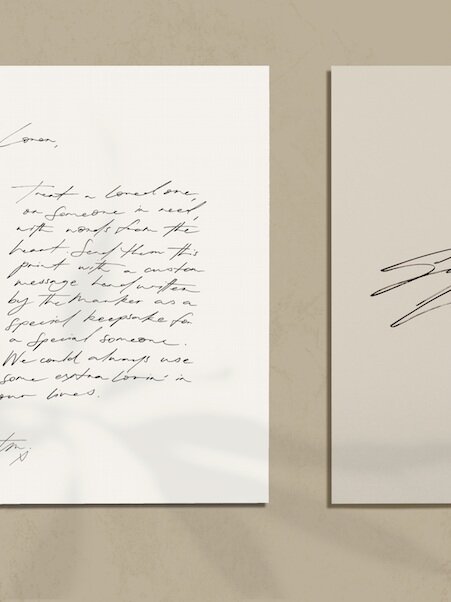 Loren,
Treat a loved one,
or someone in need,
with words from the
heart. Send them this
print with a custom
message handwritten
by The Marker as a
special keepsake for
a special someone.
We could always use
some extra lovin' in
our lives.